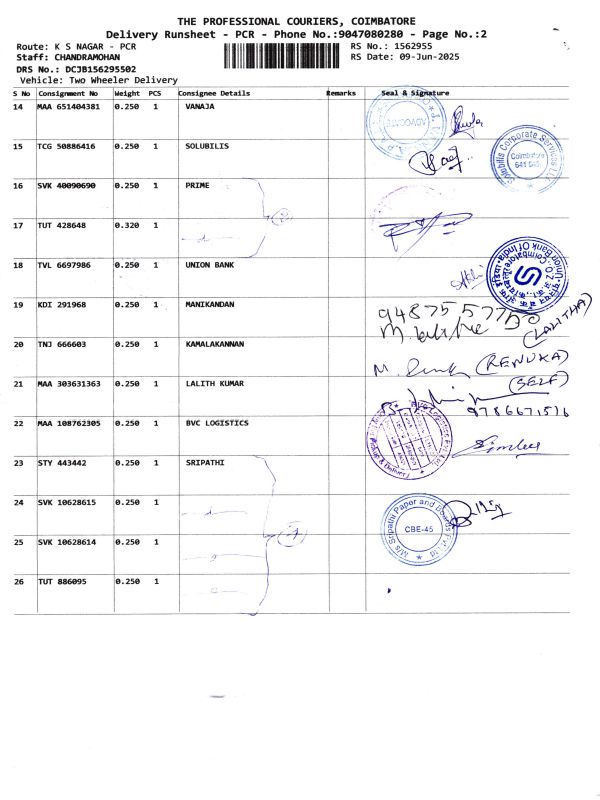 THE PROFESSIONAL COURIERS, COIMBATORE
Delivery Runsheet - PCR - Phone No.:9047080280 - Page No.:2
Route: K S NAGAR - PCR RS No.: 1562955
Staff: CHANDRAMOHAN RS Date: 09-Jun-2025
DRS No.: DCJB156295502
Vehicle: Two Wheeler Delivery
S No Consignment No Weight PCS Consignee Details Remarks Seal & Signature
14 MAA 651404381 0.250 1 VANAJA
ADVOCATE
15 TCG 50886416 0.250 1 SOLUBILIS
Solubilis Corporate Services LLP
Coimbatore
16 SVK 40090690 0.250 1 PRIME
17 TUT 428648 0.320 1
18 TVL 6697986 0.250 1 UNION BANK
Union Bank Of India
19 KDI 291968 0.250 1 MANIKANDAN
9487557750
(LALITHA)
20 TNJ 666603 0.250 1 KAMALAKANNAN
(RENUKA)
21 MAA 303631363 0.250 1 LALITH KUMAR
(SELF)
9786671516
22 MAA 108762305 0.250 1 BVC LOGISTICS
23 STY 443442 0.250 1 SRIPATHI
24 SVK 10628615 0.250 1
M/s Sripathi Paper and Boards Pvt Ltd
CBE-45
25 SVK 10628614 0.250 1
26 TUT 886095 0.250 1